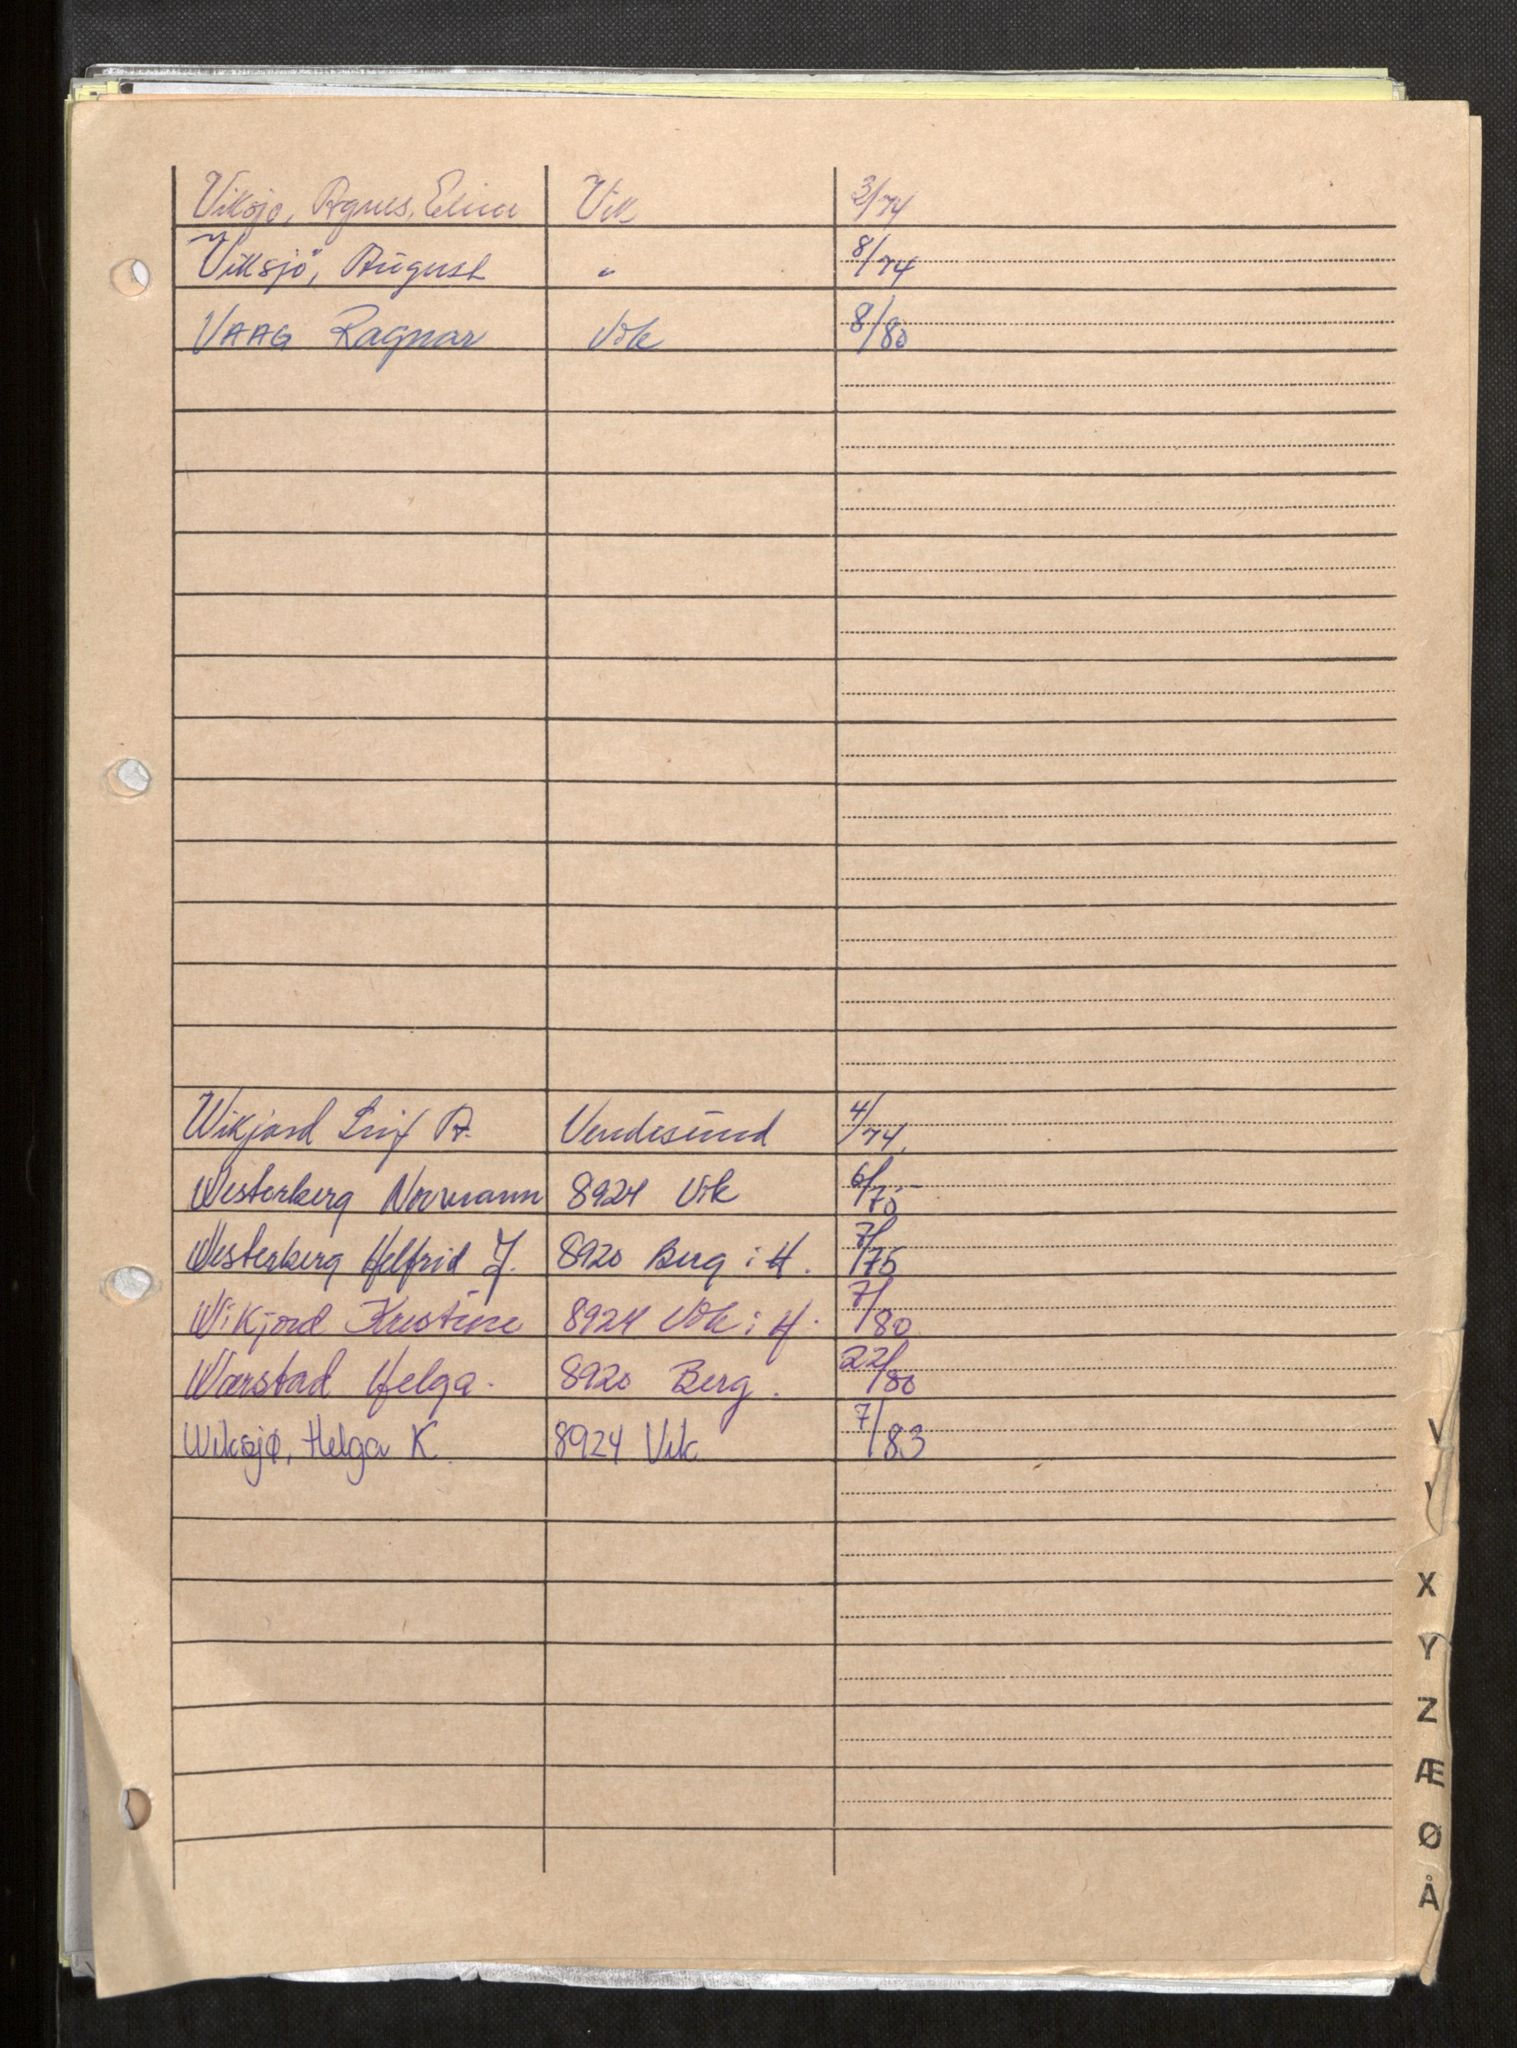 Viksjø, Agnes, Elina Vik 3/74
Viksjö, August " 8/74
VAAG Ragnar Vik 8/80
Wikjord Leif A. Vendesund 4/74
Westerberg Normann 8924 Vik 6/75
Westerberg Helfrid J. 8920 Berg i H. 7/75
Wikjord Kristine 8924 Vik i H. 7/80
Wærstad Helga. 8920 Berg. 22/80
Wiksjø, Helga K. 8924 Vik 7/83
V
X
Y
Z
Æ
Ø
Å